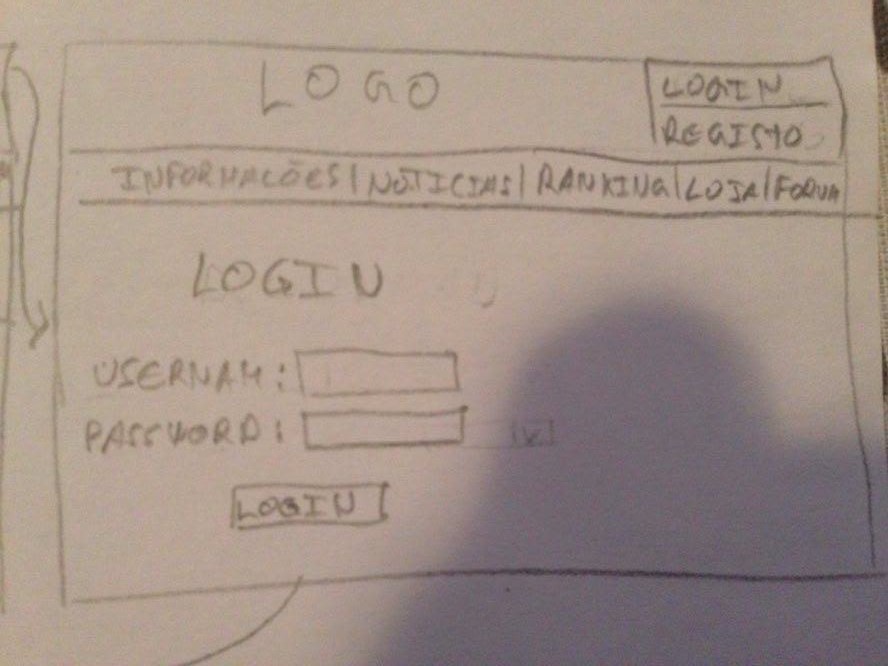 LOGO
LOGIN
REGISTO
INFORMACÕES | NOTICIAS | RANKING | LOJA | FORUM
LOGIN
USERNAM:
PASSWORD:
LOGIN